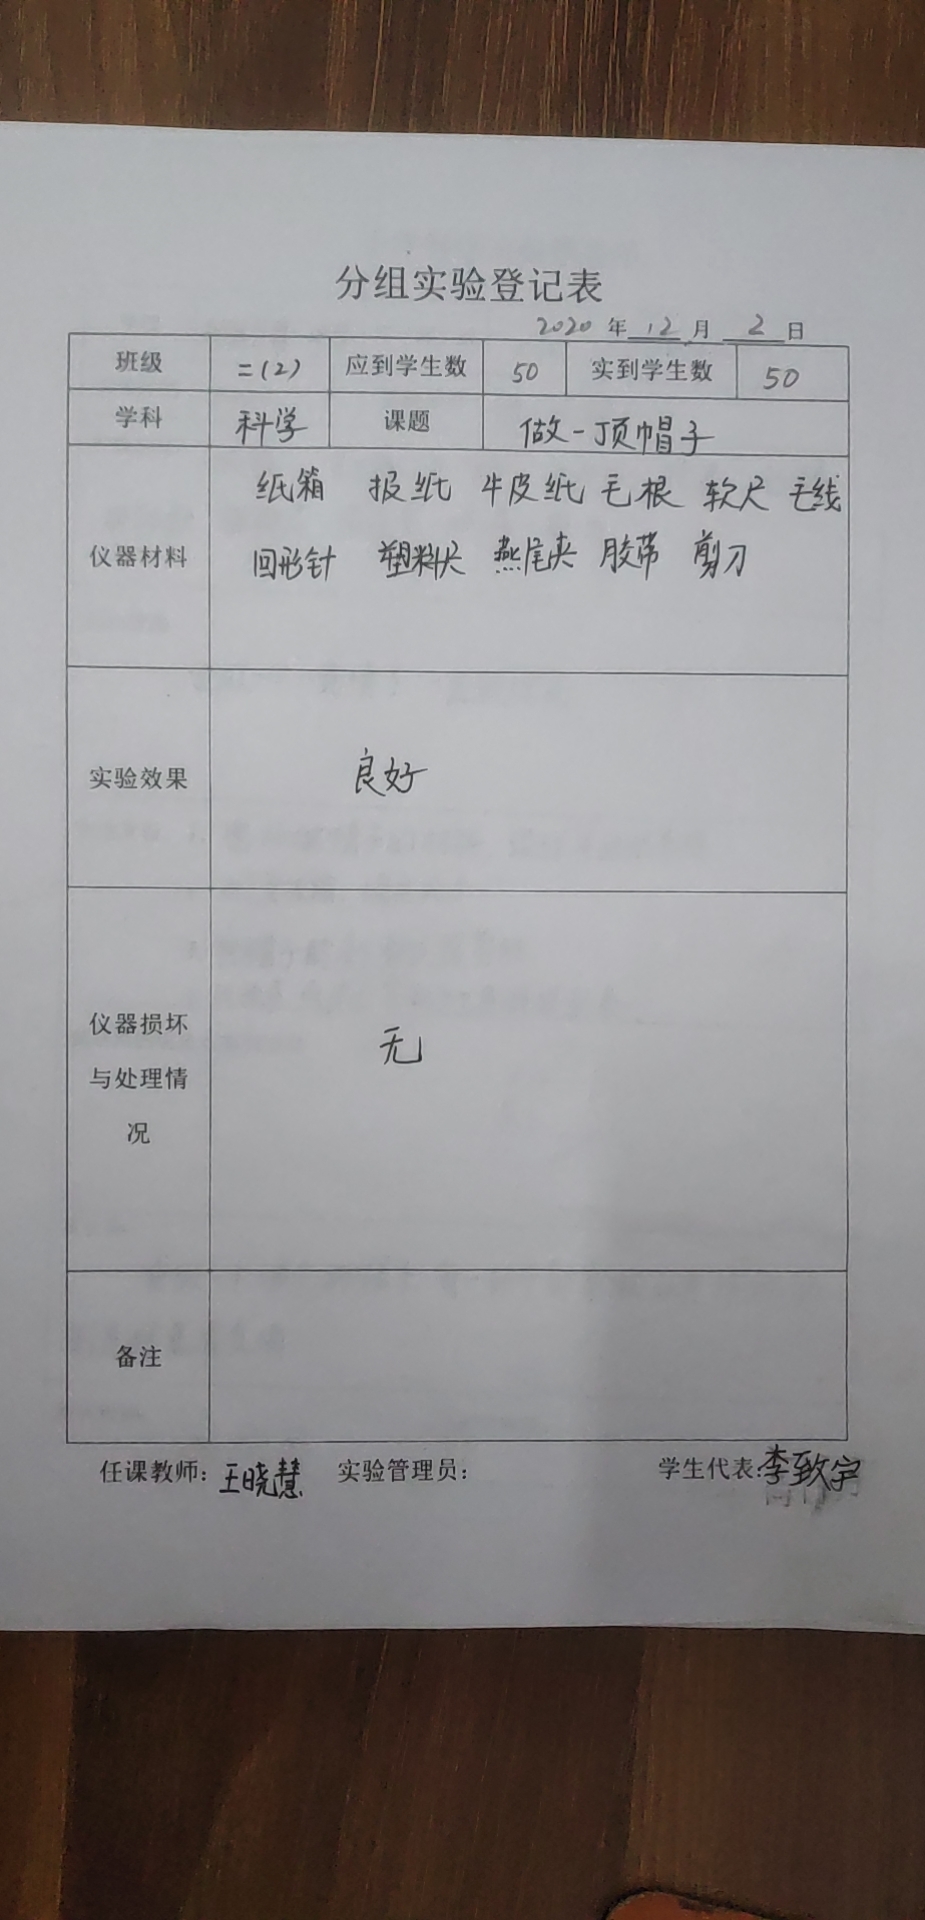 分组实验登记表
2020 年 12 月 2 日
班级 二(2) 应到学生数 50 实到学生数 50
学科 科学 课题 做一顶帽子
纸箱 报纸 牛皮纸 毛根 软尺 毛线
仪器材料 回形针 塑料尺 燕尾夹 胶带 剪刀
实验效果 良好
仪器损坏
与处理情
况
无
备注
任课教师：王晓慧 实验管理员： 学生代表：李致宇